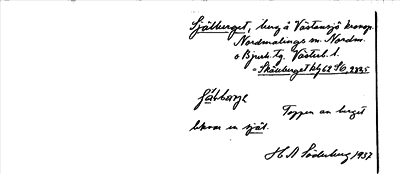 Sjätberget, berg å Västansjö kronop.
Nordmalings sn. Nordm.
o Bjurh. tg. Västerb. l.
= Skällberget kbl 62 SO, 233.5
Toppen av berget
liknar en sjät.
H A Söderberg 1937